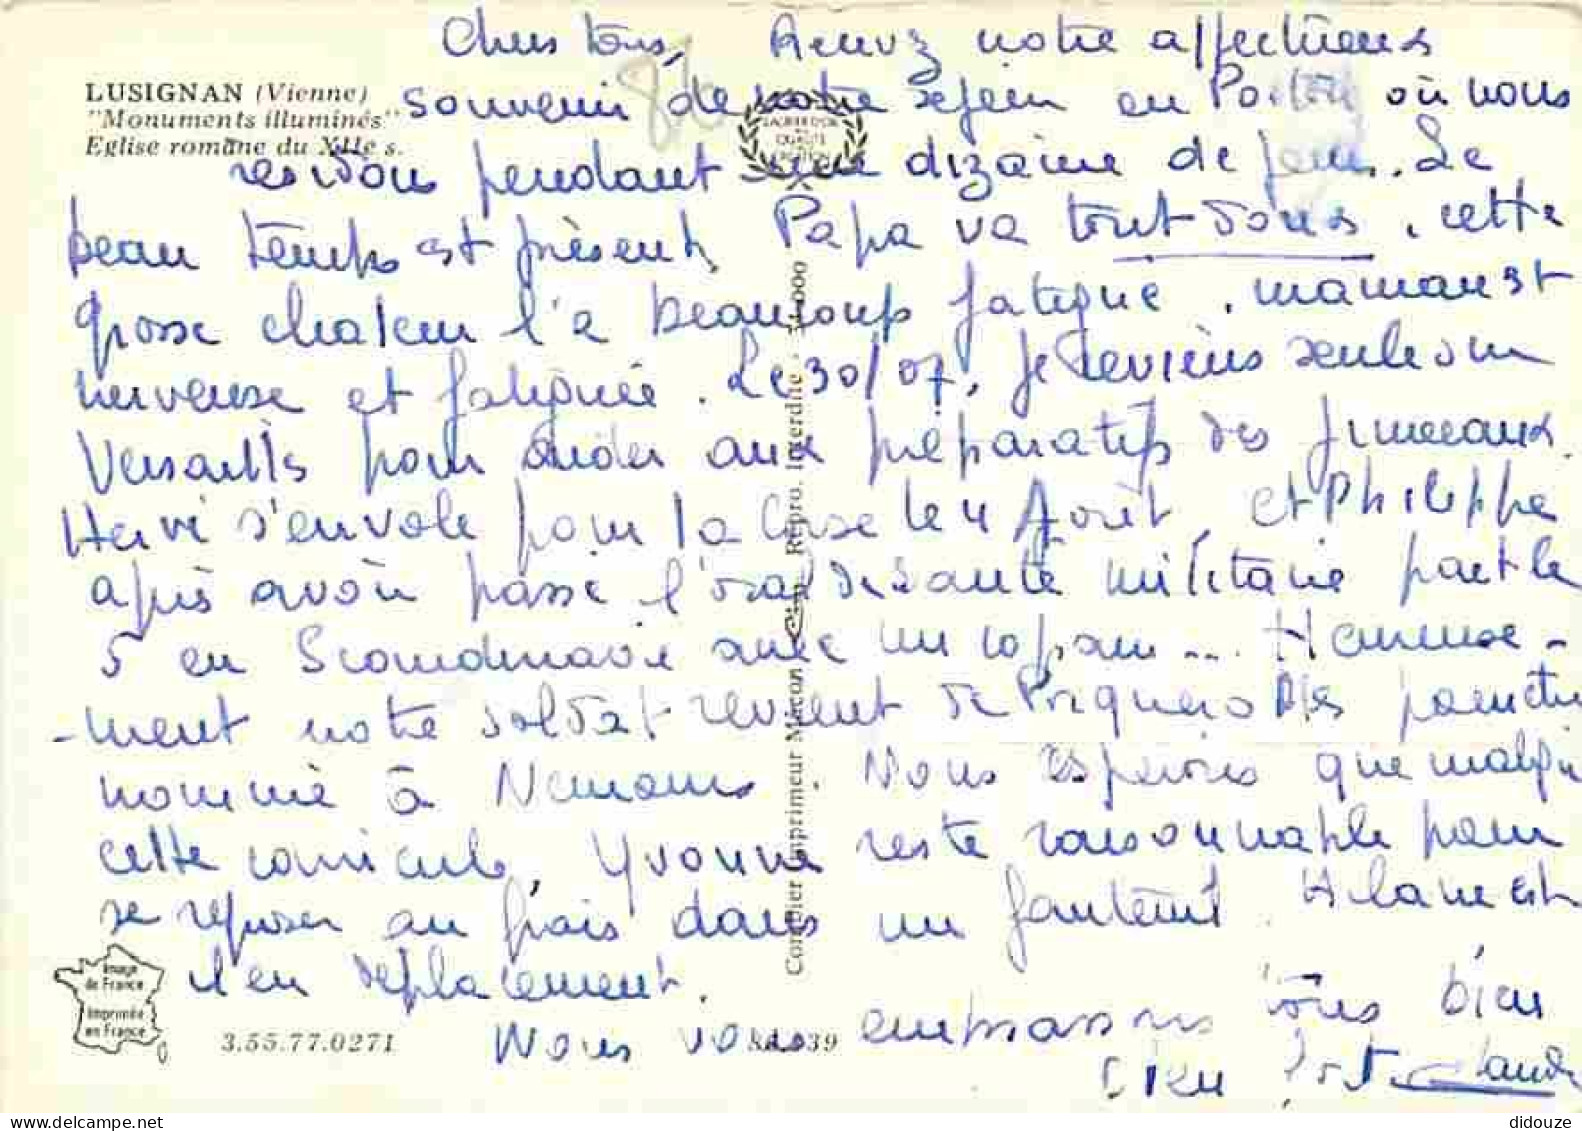 Chers tous, Recevez notre affectueux
LUSIGNAN (Vienne)
"Monuments illuminés"
Eglise romane du XIIe s.
86
souvenir de notre séjour en Poitou où nous
résidons pendant une dizaine de jours. Le
beau temps est présent, Papa va tout doux, cette
grosse chaleur l'a beaucoup fatigué, maman est
nerveuse et fatiguée. Le 30/07, je reviens seule sur
Versailles pour aider aux préparatifs des jumeaux.
Hervé s'envole pour la Corse le 4 Août et Philippe
après avoir passé l'oral de santé militaire part le
5 en Scandinavie avec un copain... Heureuse-
-ment notre soldat revient de Porquerolles
nommé à . Nous espérons que malgré
cette canicule, Yvonne reste raisonnable pour
se reposer au frais dans un fauteuil. Alain est
il en déplacement.
Nous vous embrassons tous bien
bien fort. Claude
Image
de France
Imprimée
en France
3.55.77.0271
Combier Imprimeur Macon Repro. Interdite
didouze